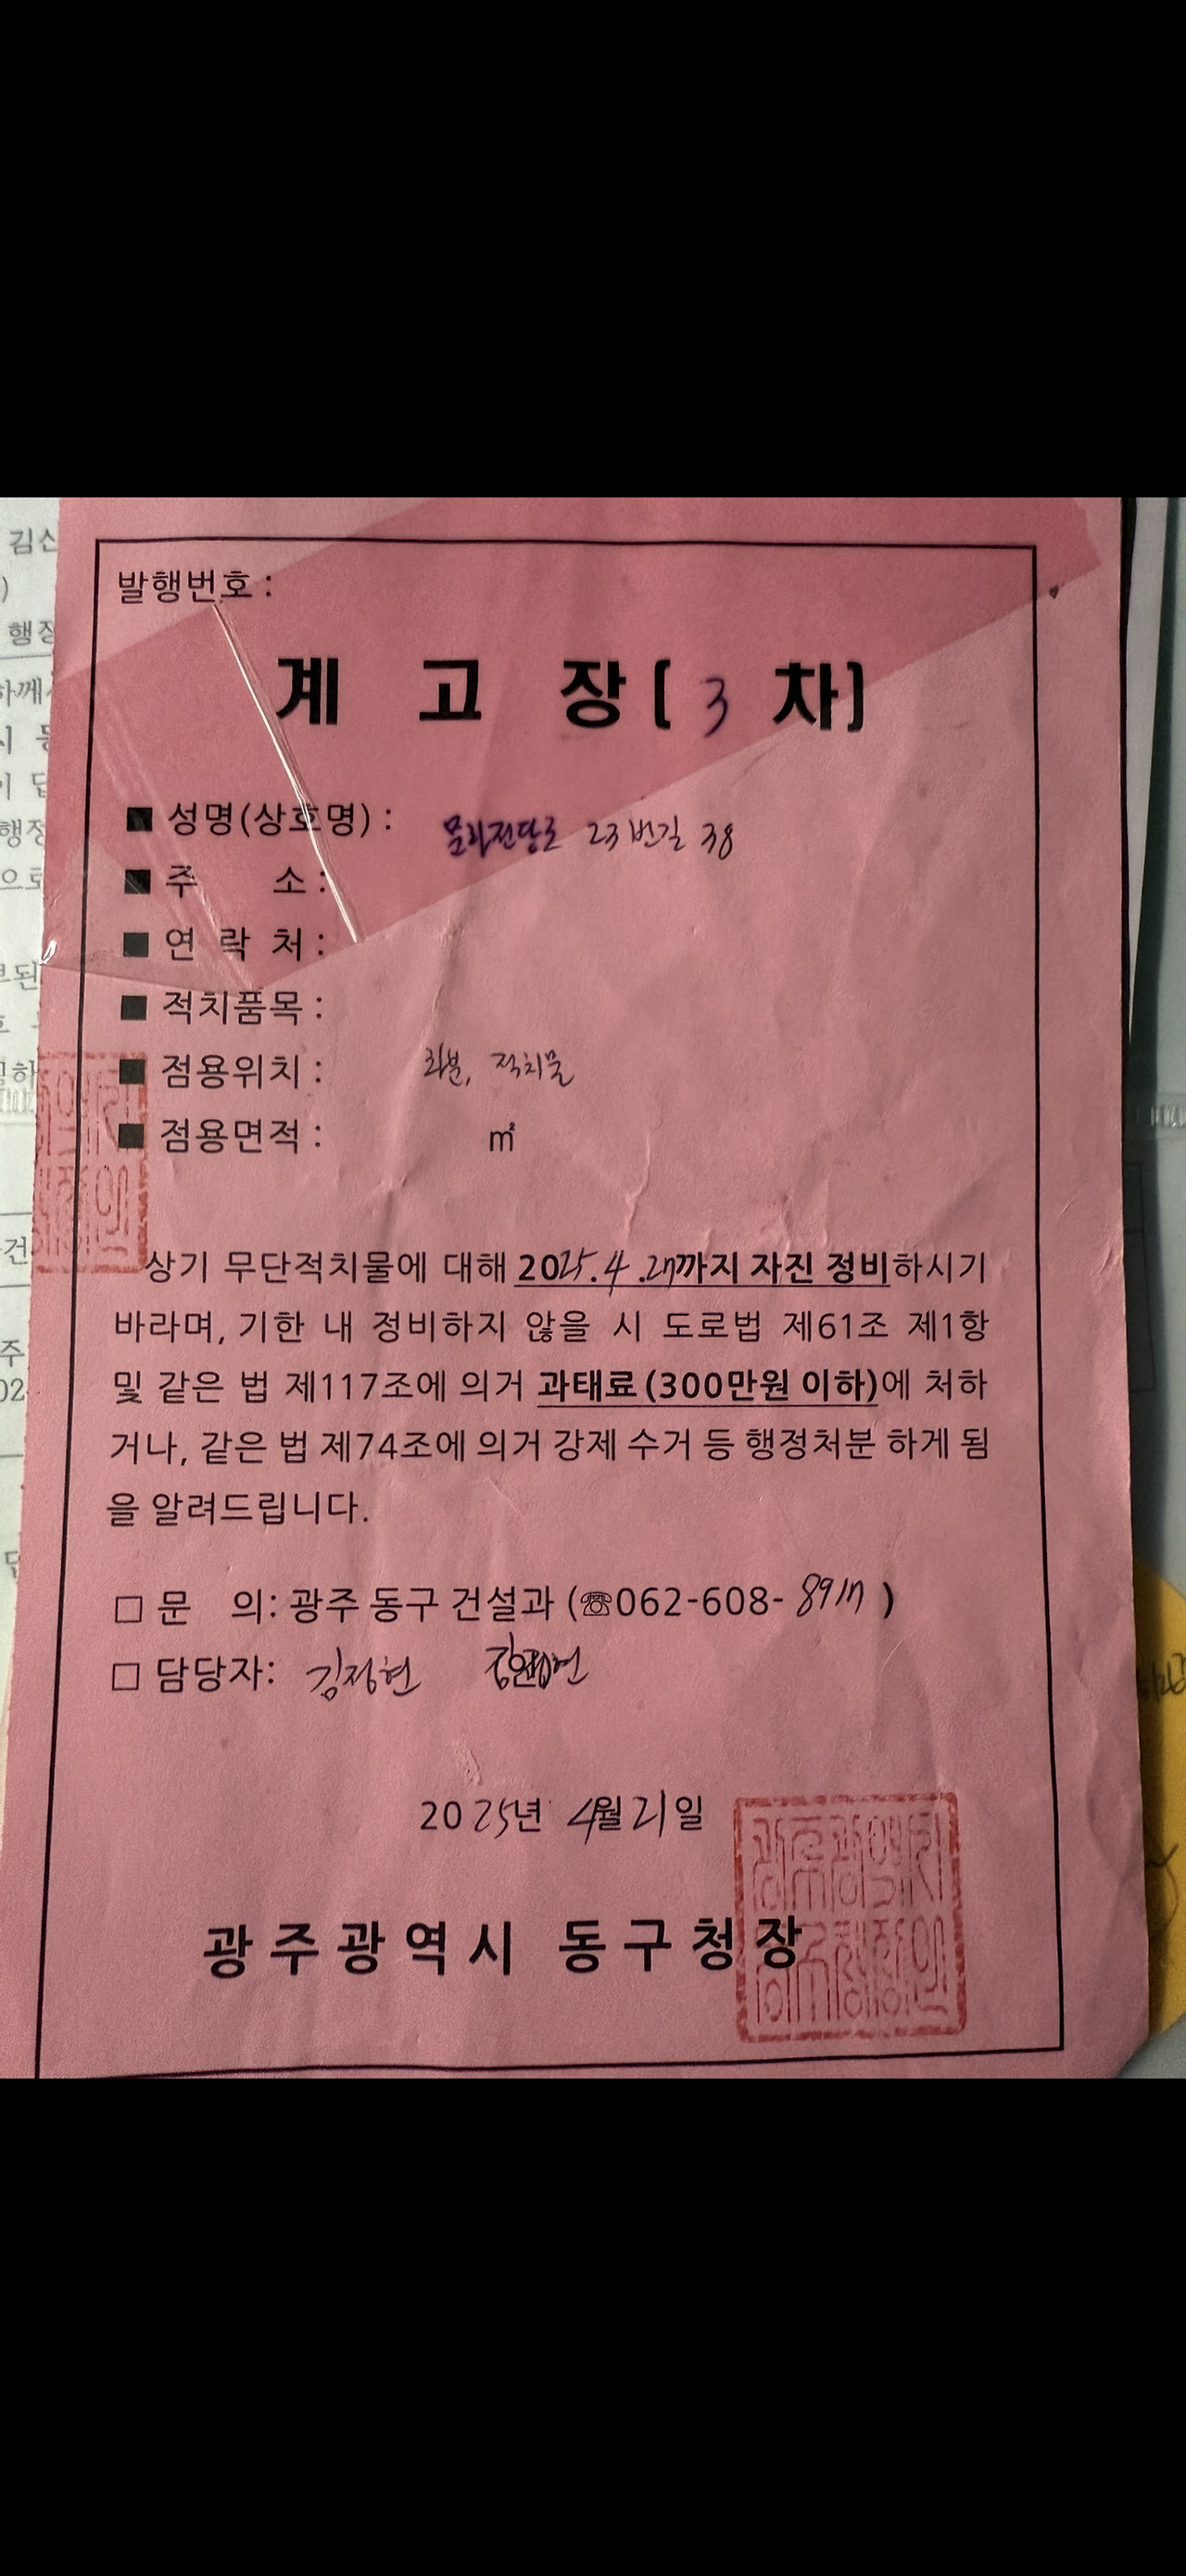 발행번호 :
계 고 장 [ 3 차]
■ 성명(상호명) : 문화전당로 23번길 38
■ 주 소 :
■ 연 락 처 :
■ 적치품목 :
■ 점용위치 : 화분, 적치물
■ 점용면적 : ㎡
상기 무단적치물에 대해 2025.4.27까지 자진 정비하시기
바라며, 기한 내 정비하지 않을 시 도로법 제61조 제1항
및 같은 법 제117조에 의거 과태료(300만원 이하)에 처하
거나, 같은 법 제74조에 의거 강제 수거 등 행정처분 하게 됨
을 알려드립니다.
□ 문 의: 광주 동구 건설과 (☏062-608- )
□ 담당자: 김정현
2025년 4월 21일
광주광역시 동구청장